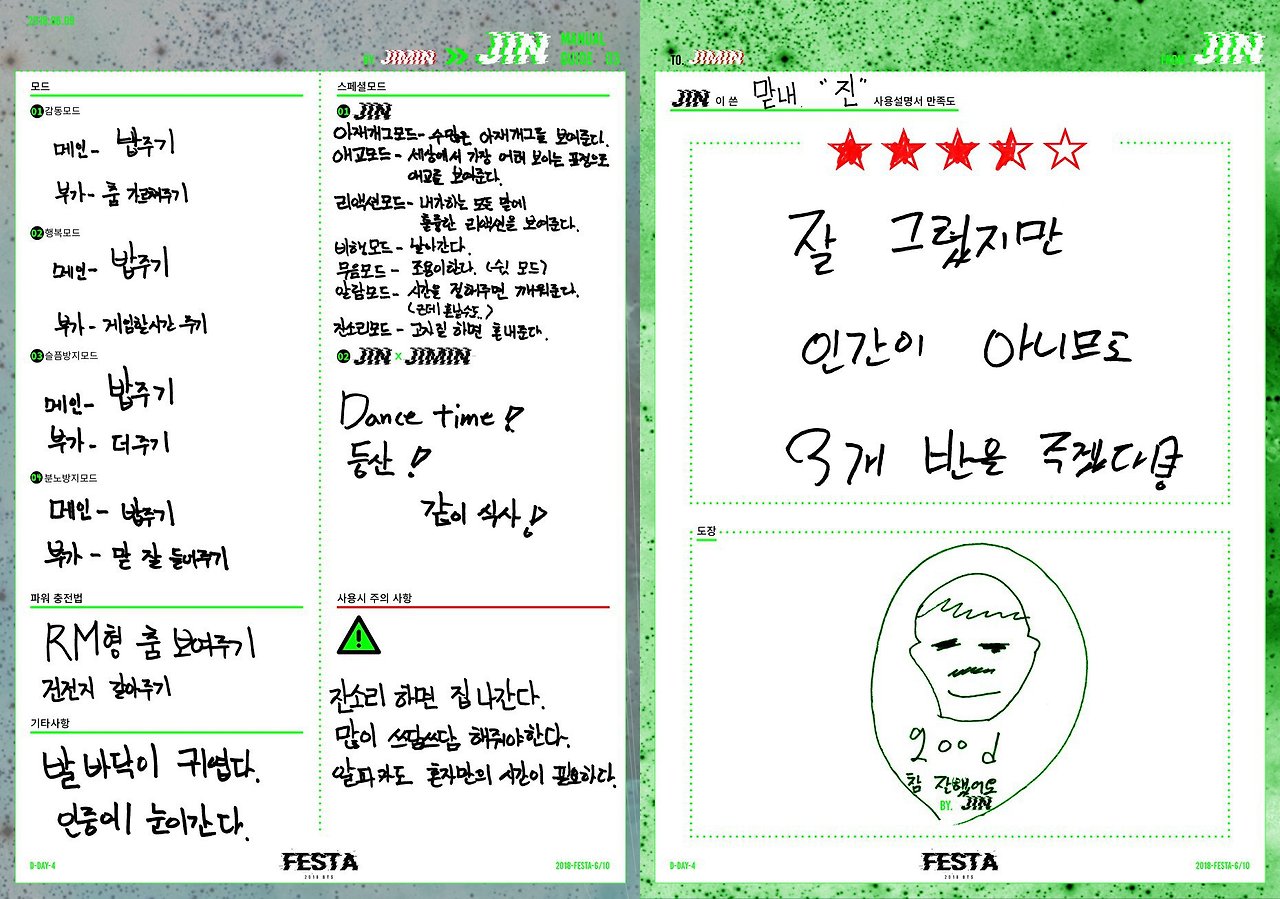 2018.06.09
BY JIMIN >> JIN MANUAL GUIDE 03
모드
01 감동모드
메인 - 밥주기
부가 - 춤 가르쳐주기
02 행복모드
메인 - 밥주기
부가 - 게임할시간 주기
03 슬픔방지모드
메인 - 밥주기
부가 - 더주기
04 분노방지모드
메인 - 밥주기
부가 - 말 잘 들어주기
파워 충전법
RM형 춤 보여주기
건전지 갈아주기
기타사항
발바닥이 귀엽다.
인중에 눈이간다.
스페셜모드
01 JIN
아재개그모드 - 수많은 아재개그를 보여준다.
애교모드 - 세상에서 가장 어려 보이는 표정으로
애교를 보여준다.
리액션모드 - 내가하는 모든 말에
훌륭한 리액션을 보여준다.
비행모드 - 날아간다.
무음모드 - 조용히한다. (쉿 모드)
알람모드 - 시간을 정해주면 깨워준다.
(근데 혼날수도..)
잔소리모드 - 고자질 하면 혼내준다.
02 JIN x JIMIN
Dance time!
등산!
같이 식사!
사용시 주의 사항
잔소리 하면 집 나간다.
많이 쓰담쓰담 해줘야한다.
알파카도 혼자만의 시간이 필요하다.
D-DAY-4
FESTA
2018 BTS
2018-FESTA-6/10
TO. JIMIN
FROM. JIN
JIN 이 쓴 맏내. "진" 사용설명서 만족도
잘 그렸지만
인간이 아니므로
3개 반을 주겠다!
도장
good
참 잘했어요
BY. JIN
D-DAY-4
FESTA
2018 BTS
2018-FESTA-6/10